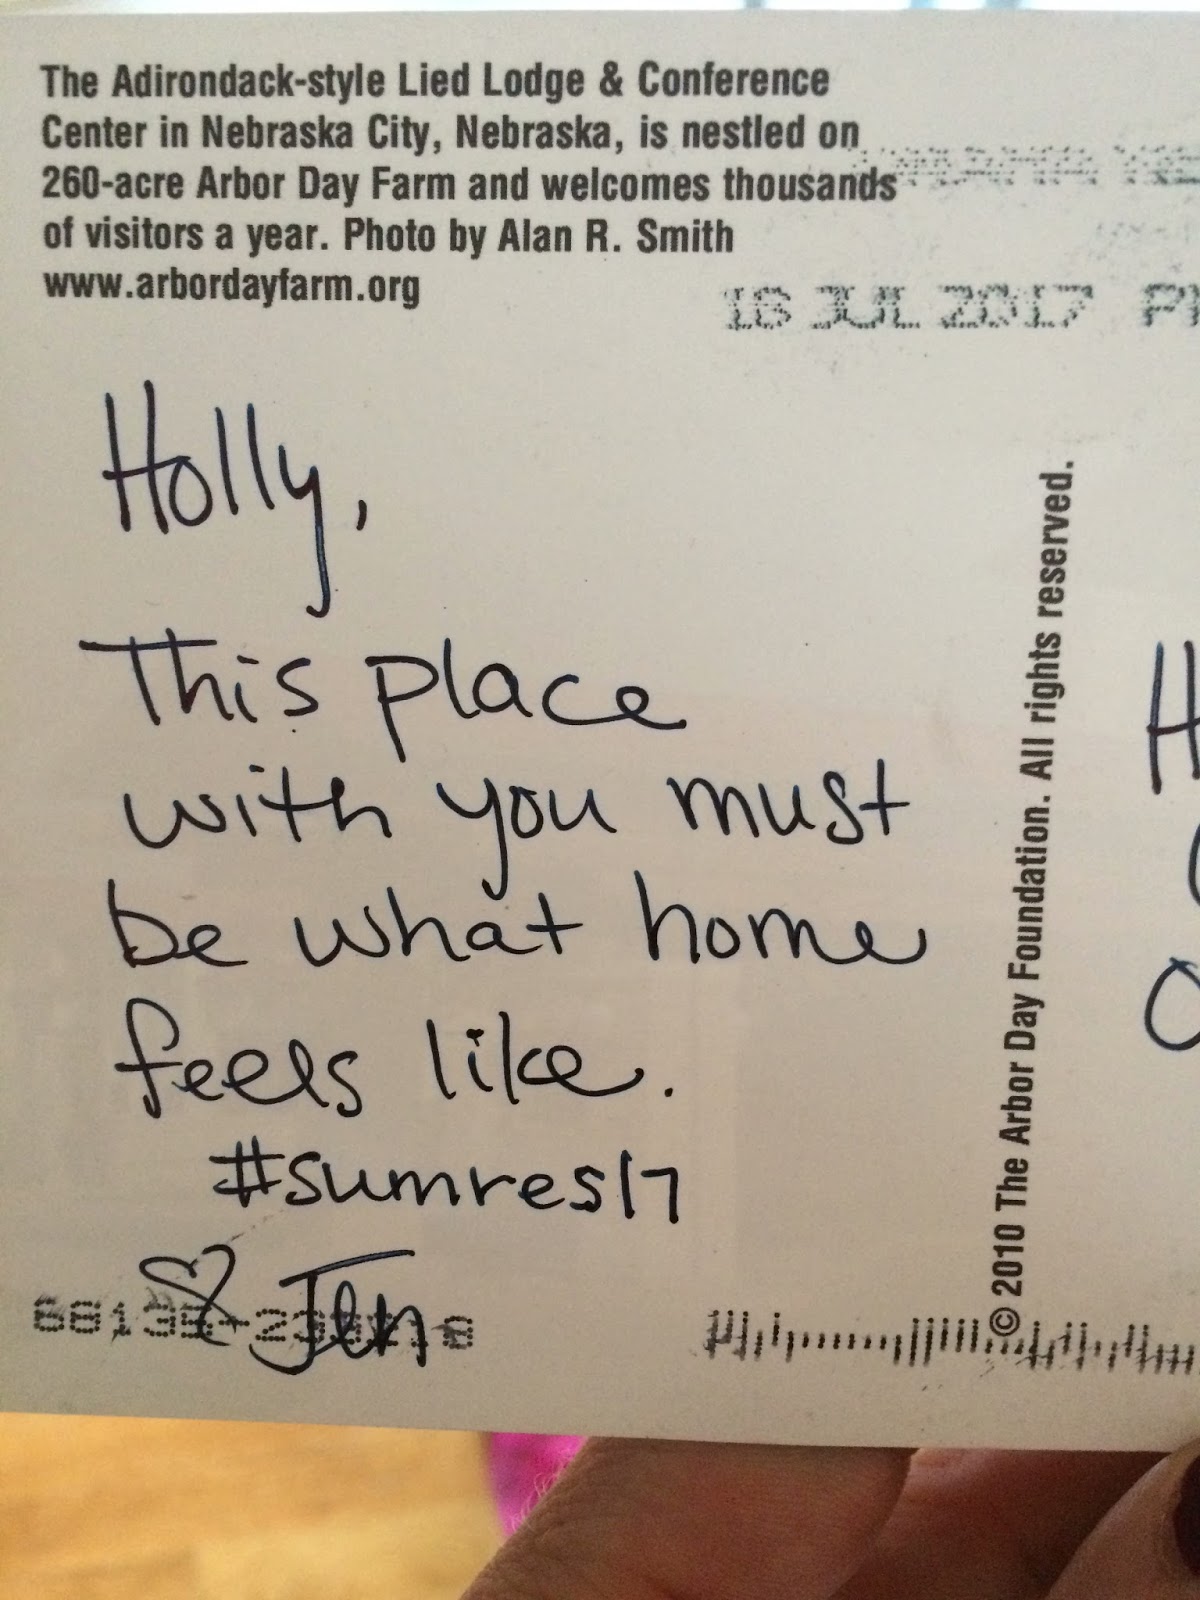 The Adirondack-style Lied Lodge & Conference
Center in Nebraska City, Nebraska, is nestled on
260-acre Arbor Day Farm and welcomes thousands
of visitors a year. Photo by Alan R. Smith
www.arbordayfarm.org
16 JUL 2017
Holly,
This place
with you must
be what home
feels like.
#sumres17
♡ Jen
© 2010 The Arbor Day Foundation. All rights reserved.